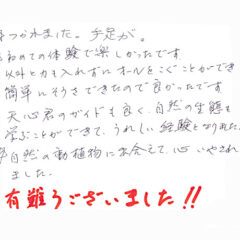 つかれました。手足が。
初めての体験で楽しかったです
以外と力も入れずにオールをこぐことができ
簡単にそうさできたので良かったです
天心君のガイドも良く、自然の生態も
学ぶことができて、うれしい経験となりました。
自然の動植物に出会えて、心いやされ
ました。
有難うございました!!